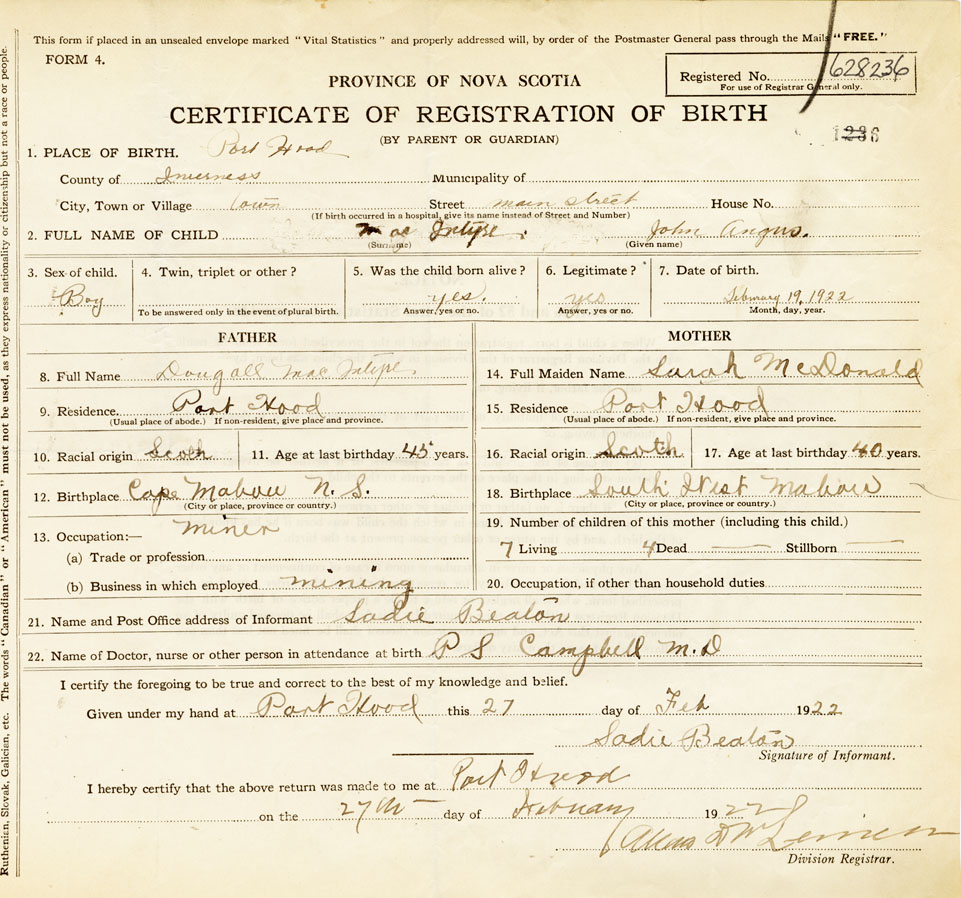 This form if placed in an unsealed envelope marked "Vital Statistics" and properly addressed will, by order of the Postmaster General pass through the Mails "FREE."
FORM 4.
Registered No. 628236
For use of Registrar General only.
PROVINCE OF NOVA SCOTIA
CERTIFICATE OF REGISTRATION OF BIRTH
(BY PARENT OR GUARDIAN)
1236
1. PLACE OF BIRTH. Port Hood
County of Inverness Municipality of
City, Town or Village Town Street main street House No.
(If birth occurred in a hospital, give its name instead of Street and Number)
2. FULL NAME OF CHILD Mac Intyre. John Angus.
(Surname) (Given name)
3. Sex of child. 4. Twin, triplet or other? 5. Was the child born alive? 6. Legitimate? 7. Date of birth.
Boy yes. yes February 19, 1922
To be answered only in the event of plural birth. Answer, yes or no. Answer, yes or no. Month, day, year.
FATHER
8. Full Name Dougall Mac Intyre
9. Residence. Port Hood
(Usual place of abode.) If non-resident, give place and province.
10. Racial origin Scoth 11. Age at last birthday 45 years.
12. Birthplace Cape Mabou N. S.
(City or place, province or country.)
13. Occupation:— miner
(a) Trade or profession
(b) Business in which employed mining
MOTHER
14. Full Maiden Name Sarah McDonald
15. Residence Port Hood
(Usual place of abode.) If non-resident, give place and province.
16. Racial origin Scoth 17. Age at last birthday 40 years.
18. Birthplace South West Mabou
(City or place, province or country.)
19. Number of children of this mother (including this child.)
7 Living 4 Dead — Stillborn —
20. Occupation, if other than household duties
21. Name and Post Office address of Informant Sadie Beaton
22. Name of Doctor, nurse or other person in attendance at birth P S Campbell M.D
I certify the foregoing to be true and correct to the best of my knowledge and belief.
Given under my hand at Port Hood this 27 day of Feb 1922
Sadie Beaton
Signature of Informant.
I hereby certify that the above return was made to me at Port Hood
on the 27th day of February 1922
Division Registrar.
Ruthenian, Slovak, Galician, etc. The words "Canadian" or "American" must not be used, as they express nationality or citizenship but not a race or people.